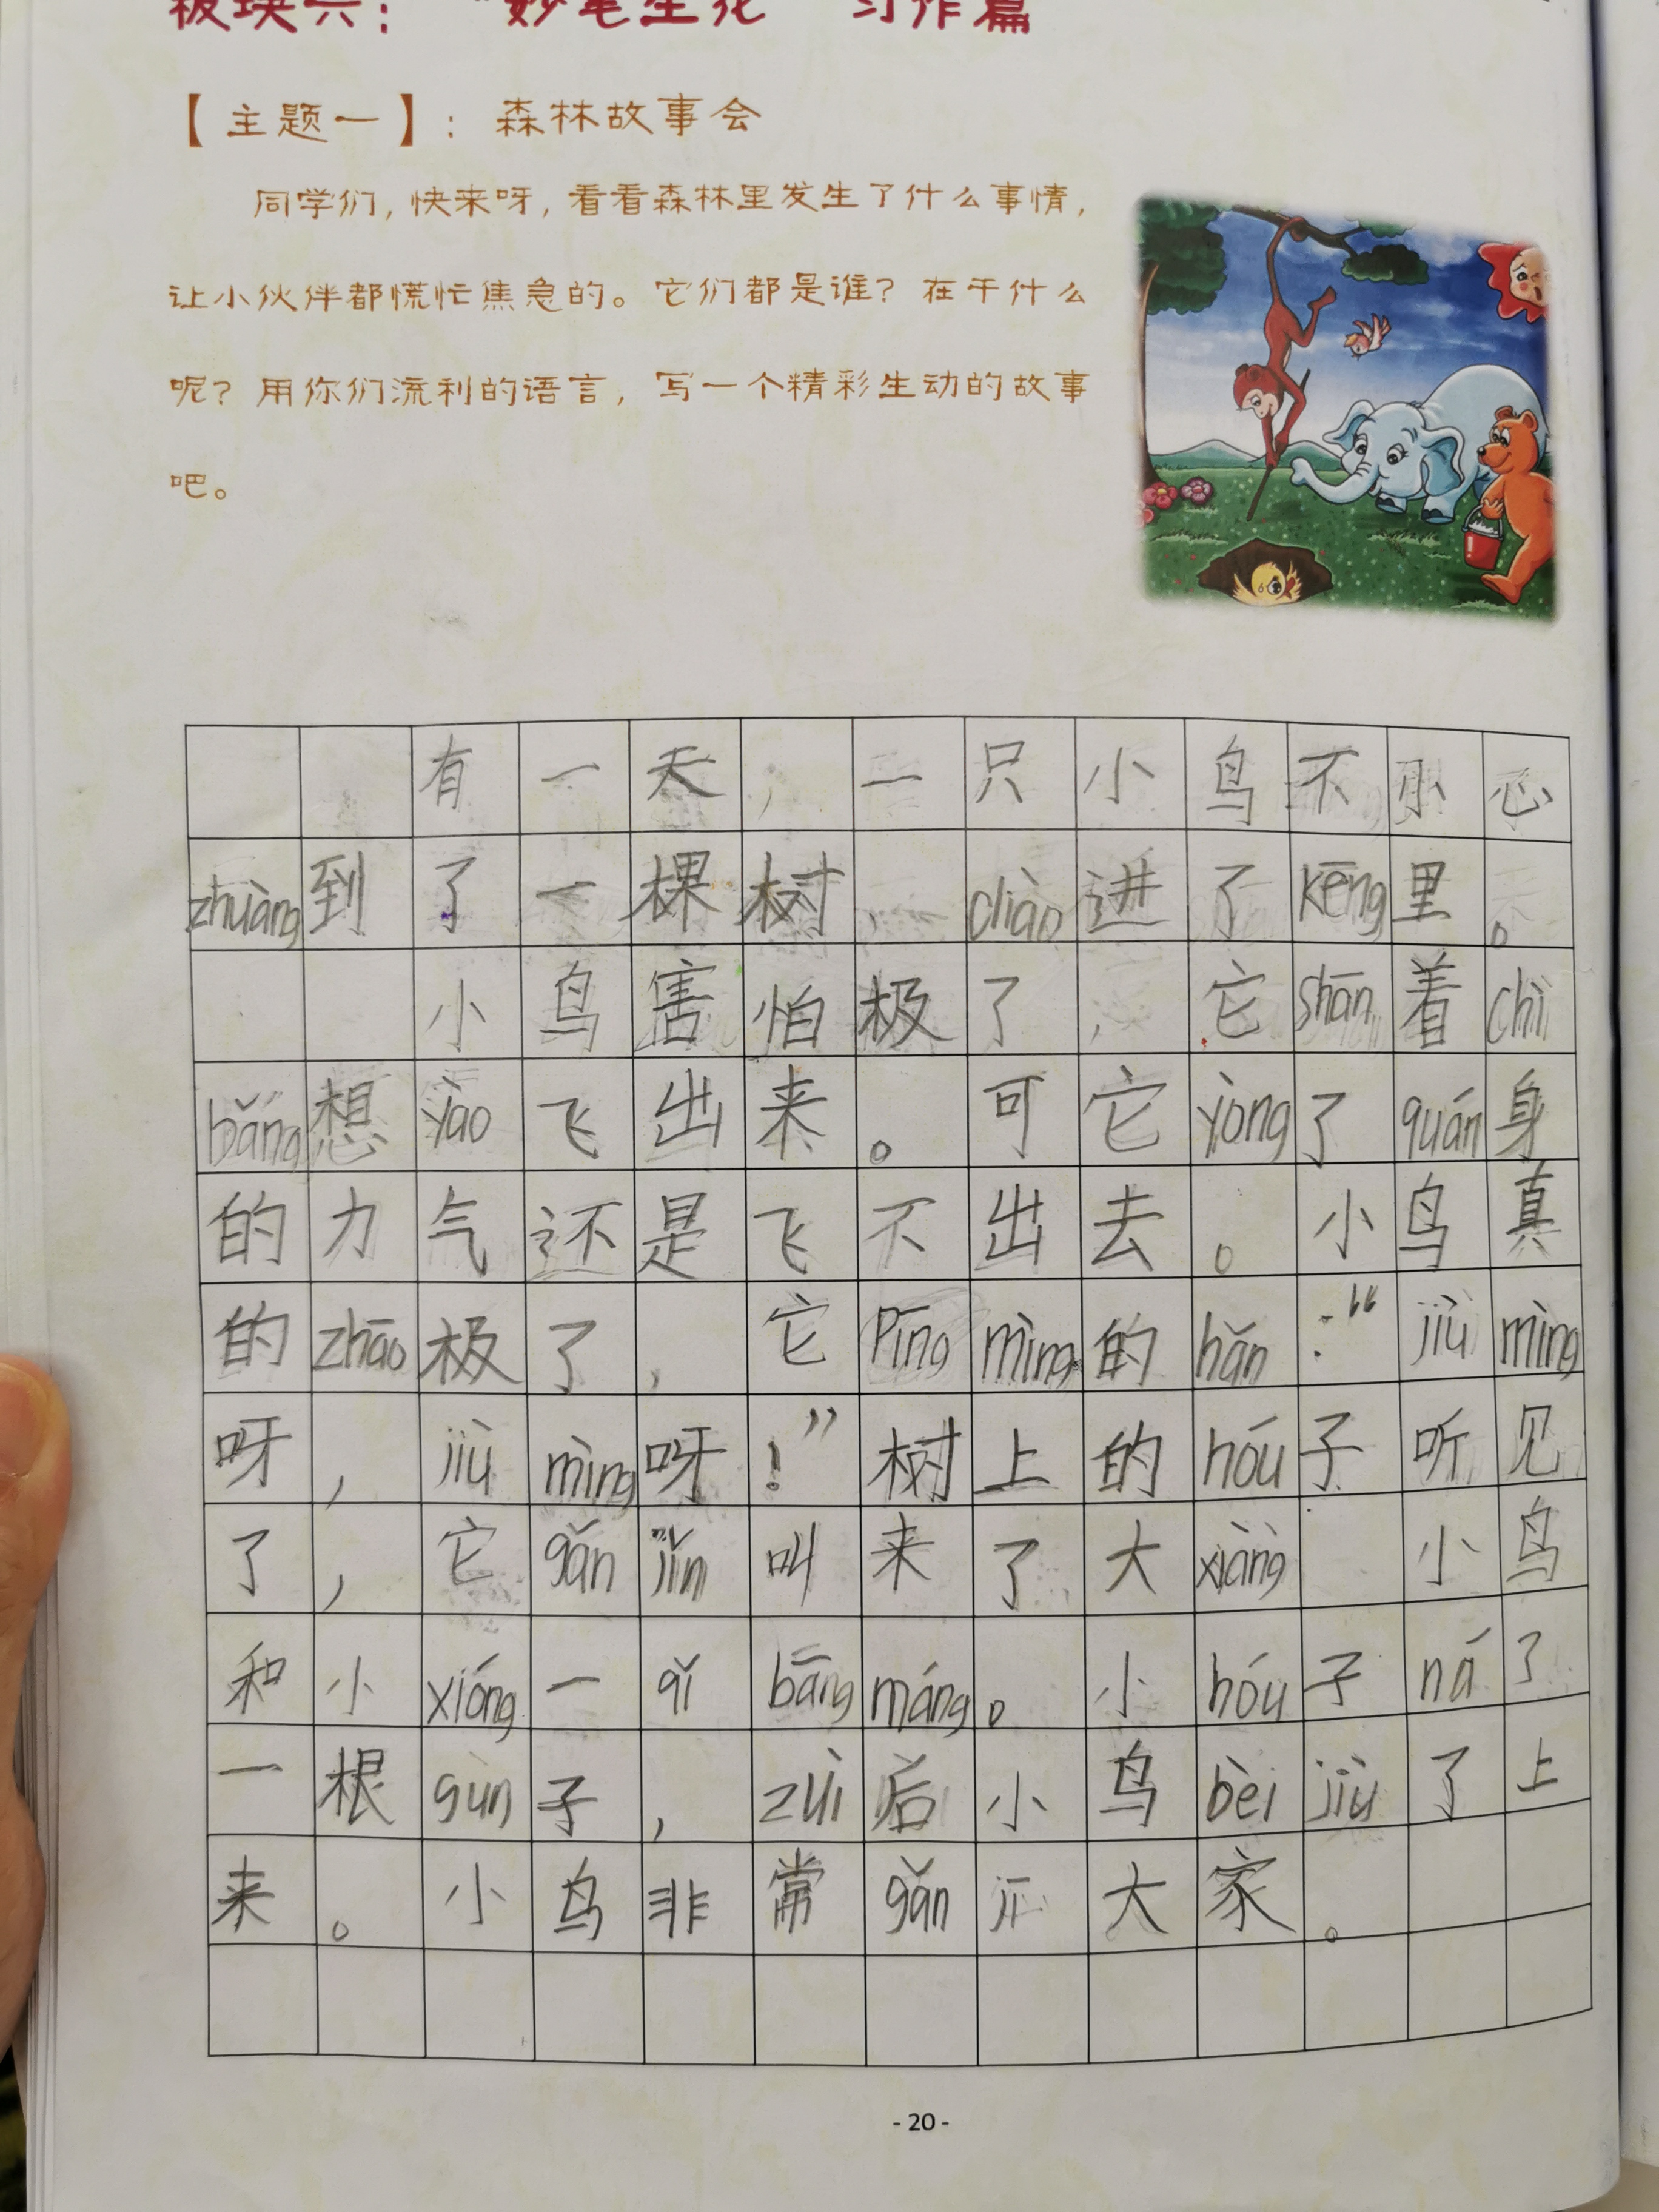 板块六:“妙笔生花”习作篇
【主题一】:森林故事会
同学们,快来呀,看看森林里发生了什么事情,
让小伙伴都慌忙焦急的。它们都是谁?在干什么
呢?用你们流利的语言,写一个精彩生动的故事
吧。
有一天,一只小鸟不小心
zhuàng到了一棵树,diào进了kēng里。
小鸟害怕极了,它shān着chì
bǎng想yào飞出来。可它yòng了quán身
的力气还是飞不出去。小鸟真
的zhāo极了,它Pīng mìng的hǎn:“jiù mìng
呀,jiù mìng呀!”树上的hóu子听见
了,它gǎn jǐn叫来了大xiàng 小鸟
和小xióng一qǐ bāng máng。小hóu子ná了
一根gùn子,zuì后小鸟bèi jiù了上
来。小鸟非常gǎn 大家。
- 20 -